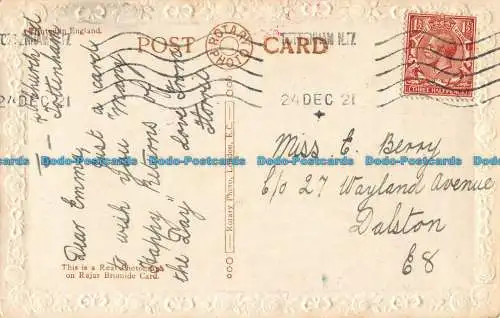 Printed in England.
POST CARD
ROTARY PHOTO
TOTTENHAM N.17
24 DEC 21
TOTTENHAM N.17
24 DEC 21
THREE HALFPENCE
Church Rd
Tottenham
Dear Emmy
Just a card
to wish you "Many
Happy Returns of
the Day"
Love from
Rotary Photo, London, E.C.
This is a Real Photograph
on Rajar Bromide Card.
Miss E. Berry
C/o 27 Wayland Avenue
Dalston
E8
Dodo-Postcards Dodo-Postcards Dodo-Postcards Dodo-Postcards Dodo-Postcards